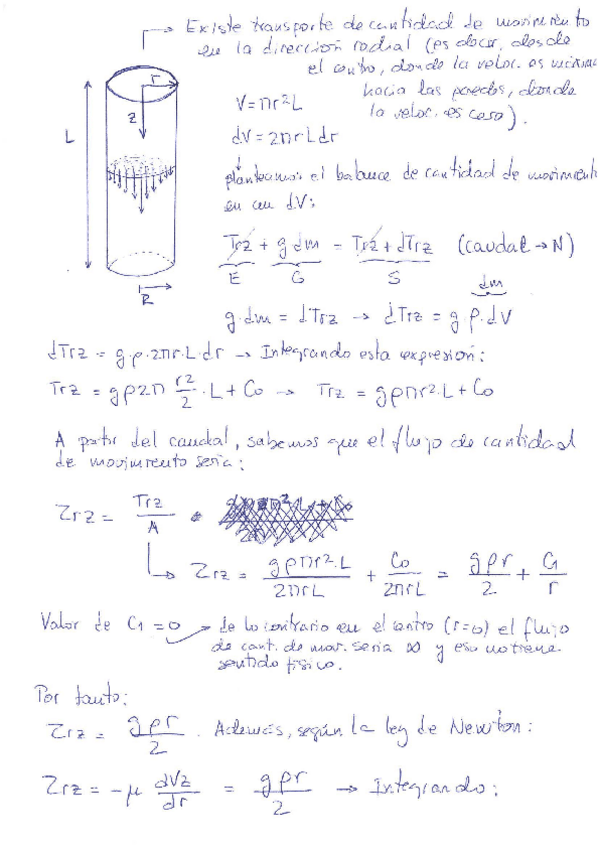 Existe transporte de cantidad de movimiento
en la dirección radial (es decir, desde
el centro, donde la veloc. es máxima
hacia las paredes, donde
la veloc. es cero).
r
z
L
R
V = πr²L
dV = 2πrLdr
planteamos el balance de cantidad de movimiento
en un dV:
Trz + g·dm = Trz + dTrz (caudal → N)
E G S
dm
g·dm = dTrz → dTrz = g ρ·dV
dTrz = g·ρ·2πr·L·dr → Integrando esta expresión:
Trz = gρ2π r²/2 · L + C0 → Trz = gρπr²·L + C0
A partir del caudal, sabemos que el flujo de cantidad
de movimiento sería:
τrz = Trz/A
→ τrz = gρπr²·L/2πrL + C0/2πrL = gρr/2 + C1/r
Valor de C1 = 0 → de lo contrario en el centro (r=0) el flujo
de cant. de mov. sería ∞ y eso no tiene
sentido físico.
Por tanto:
τrz = gρr/2 . Además, según la ley de Newton:
τrz = -μ dVz/dr = gρr/2 → Integrando: